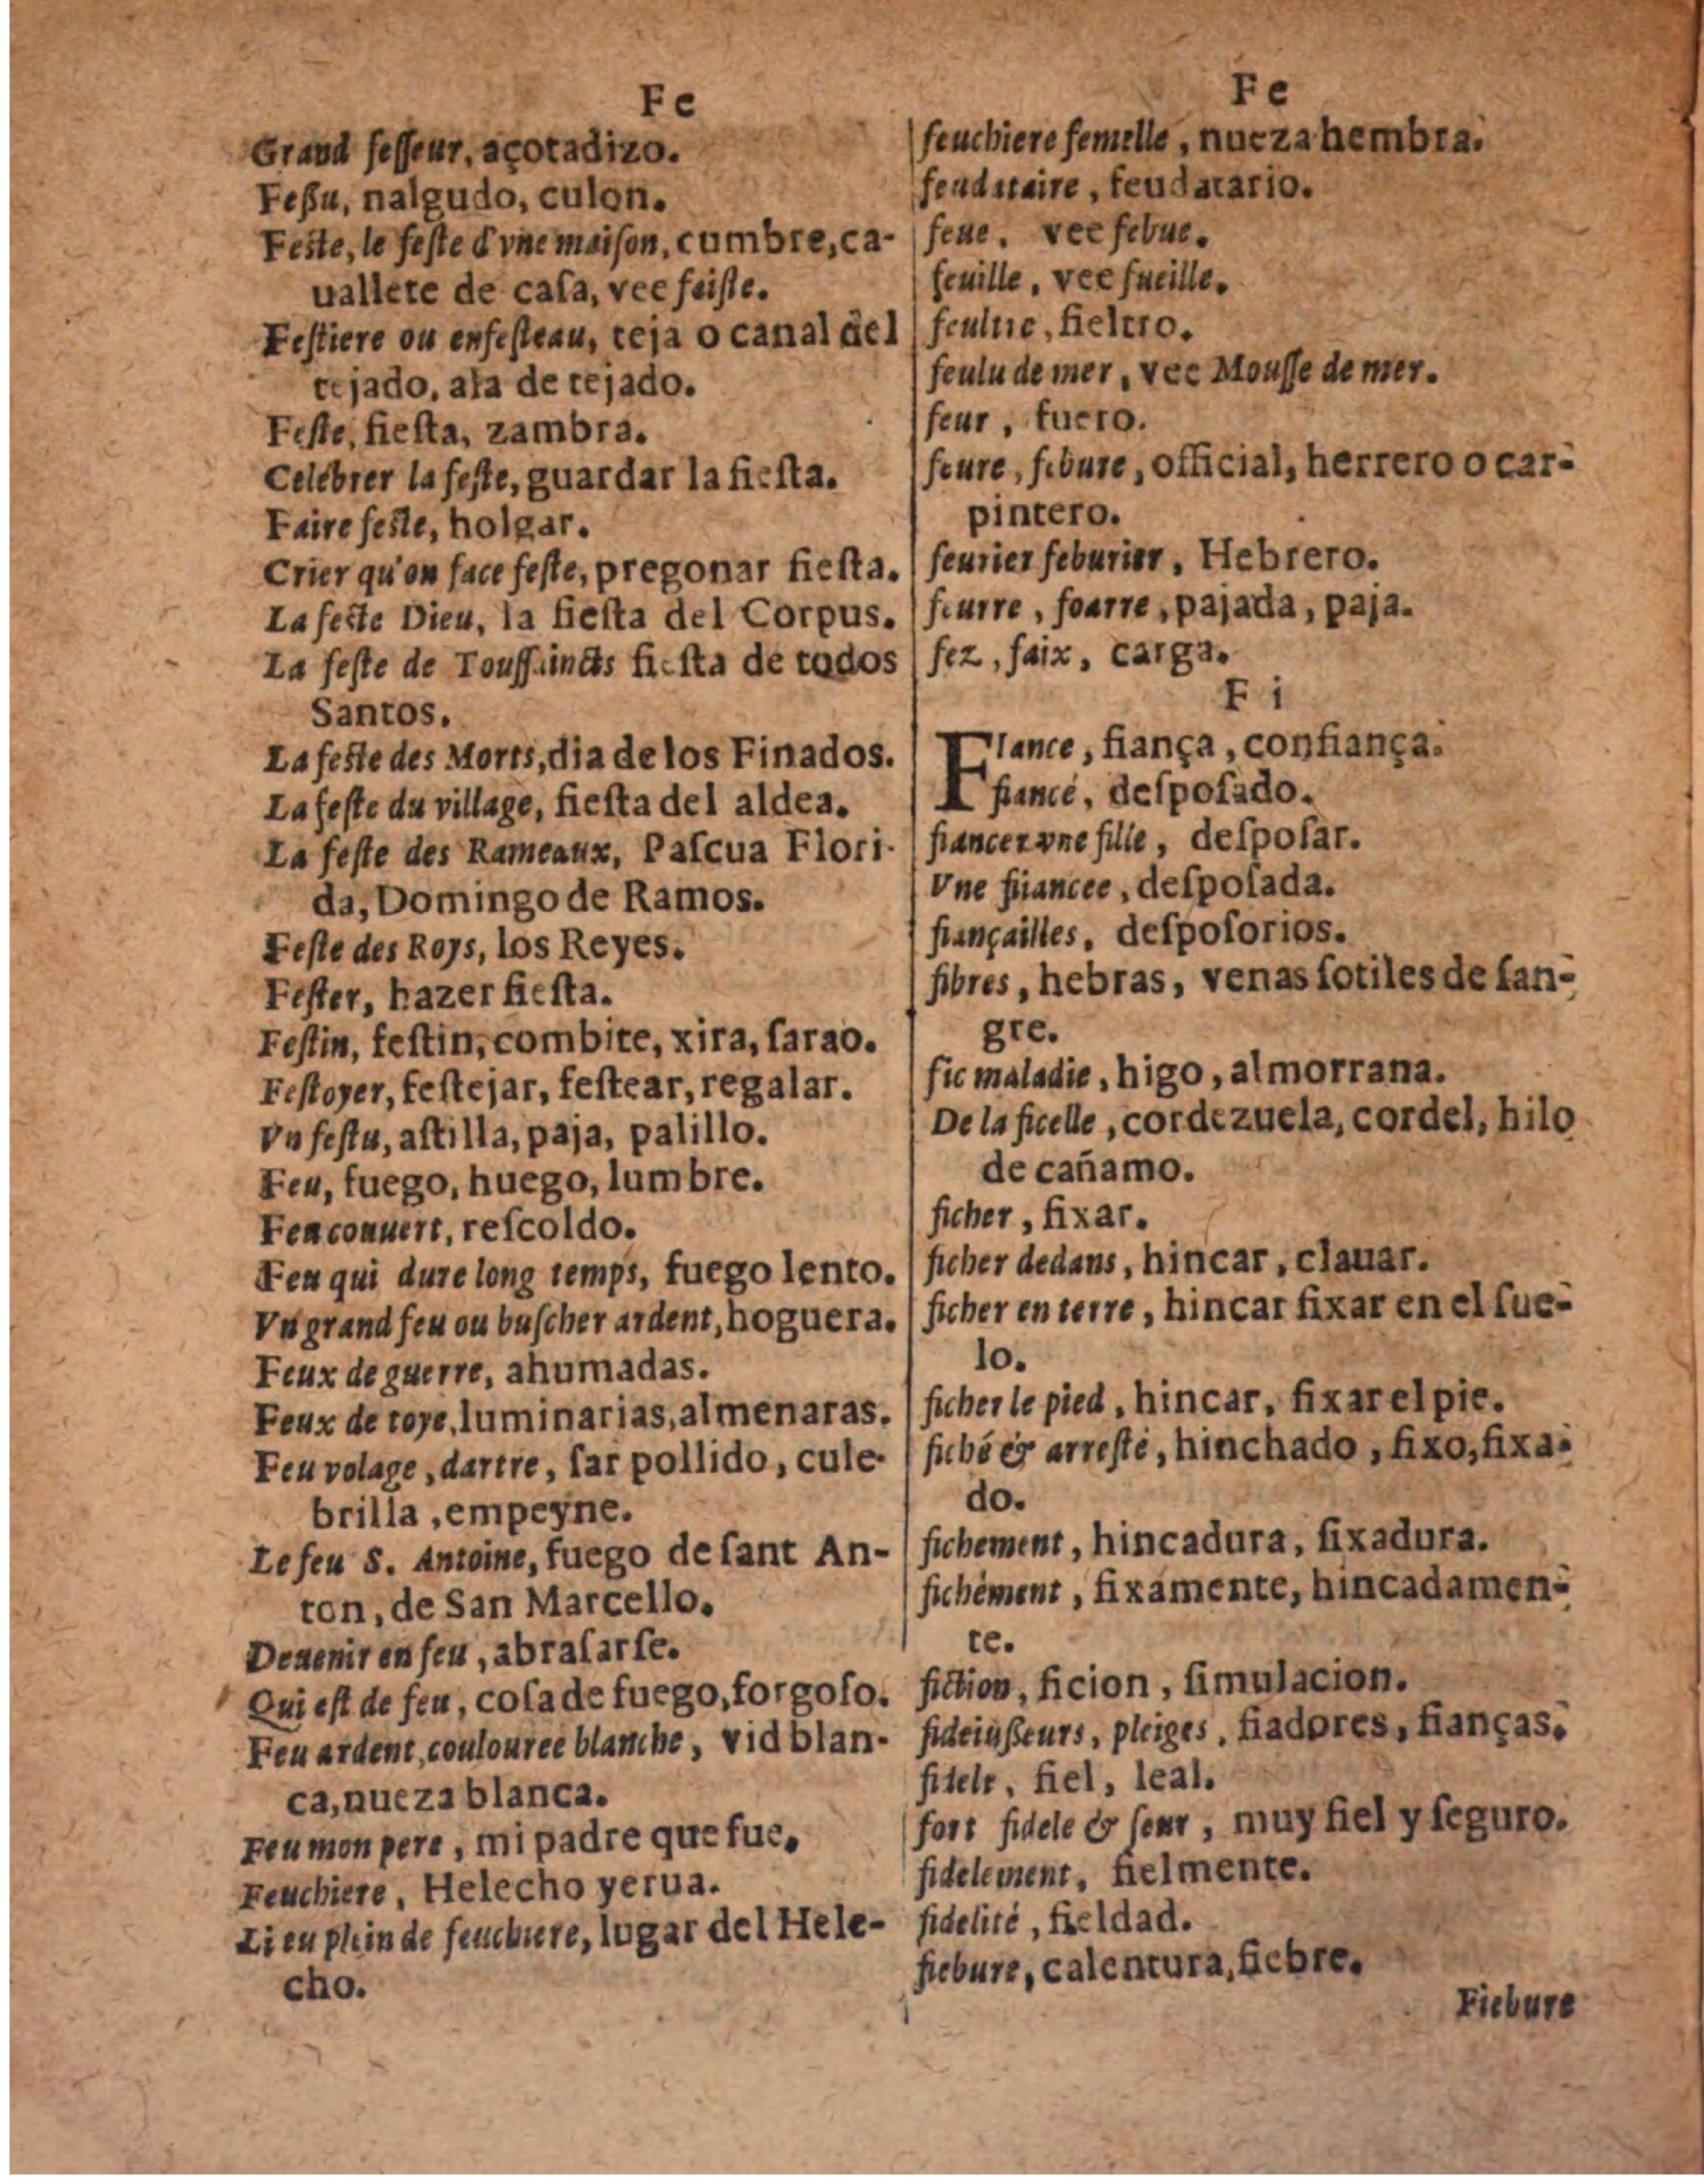 Fe
Grand feſſeur, açotadizo.
Feßu, nalgudo, culon.
Feſte, le feſte d'vne maiſon, cumbre, ca-
uallete de caſa, vee faiſte.
Feſtiere ou enfeſteau, teja o canal del
tejado, ala de tejado.
Feſte, fieſta, zambra.
Celebrer la feſte, guardar la fieſta.
Faire feſte, holgar.
Crier qu'on face feſte, pregonar fieſta.
La feſte Dieu, la fieſta del Corpus.
La feſte de Touſſaincts fieſta de todos
Santos.
La feſte des Morts, dia de los Finados.
La feſte du village, fieſta del aldea.
La feſte des Rameaux, Paſcua Flori-
da, Domingo de Ramos.
Feſte des Roys, los Reyes.
Feſter, hazer fieſta.
Feſtin, feſtin, combite, xira, ſarao.
Feſtoyer, feſtejar, feſtear, regalar.
Vn feſtu, aſtilla, paja, palillo.
Feu, fuego, huego, lumbre.
Feu conuert, reſcoldo.
Feu qui dure long temps, fuego lento.
Vn grand feu ou buſcher ardent, hoguera.
Feux de guerre, ahumadas.
Feux de ioye, luminarias, almenaras.
Feu volage, dartre, ſar pollido, cule-
brilla, empeyne.
Le feu S. Antoine, fuego de ſant An-
ton, de San Marcello.
Deuenir en feu, abraſarſe.
Qui eſt de feu, coſa de fuego, forgoſo.
Feu ardent, coulouree blanche, vid blan-
ca, nueza blanca.
Feu mon pere, mi padre que fue.
Feuchiere, Helecho yerua.
Lieu plein de feuchiere, lugar del Hele-
cho.
Fe
feuchiere femelle, nueza hembra.
feudataire, feudatario.
feue, vee febue.
feuille, vee fueille.
feultre, fieltro.
feulu de mer, vee Mouſſe de mer.
feur, fuero.
feure, febure, official, herrero o car-
pintero.
feurier feburier, Hebrero.
feurre, foarre, pajada, paja.
fez, faix, carga.
F i
FIance, fiança, confiança.
fiancé, deſpoſado.
fiancer vne fille, deſpoſar.
Vne fiiancee, deſpoſada.
fiançailles, deſpoſorios.
fibres, hebras, venas ſotiles de ſan-
gre.
fic maladie, higo, almorrana.
De la ficelle, cordezuela, cordel, hilo
de cañamo.
ficher, fixar.
ficher dedans, hincar, clauar.
ficher en terre, hincar fixar en el ſue-
lo.
ficher le pied, hincar, fixar el pie.
fiché & arreſté, hinchado, fixo, fixa-
do.
fichement, hincadura, fixadura.
fichément, fixamente, hincadamen-
te.
fiction, ficion, ſimulacion.
fideiußeurs, pleiges, fiadores, fianças.
fidele, fiel, leal.
fort fidele & ſeur, muy fiel y ſeguro.
fidelement, fielmente.
fidelité, fieldad.
fiebure, calentura, fiebre.
Fiebure